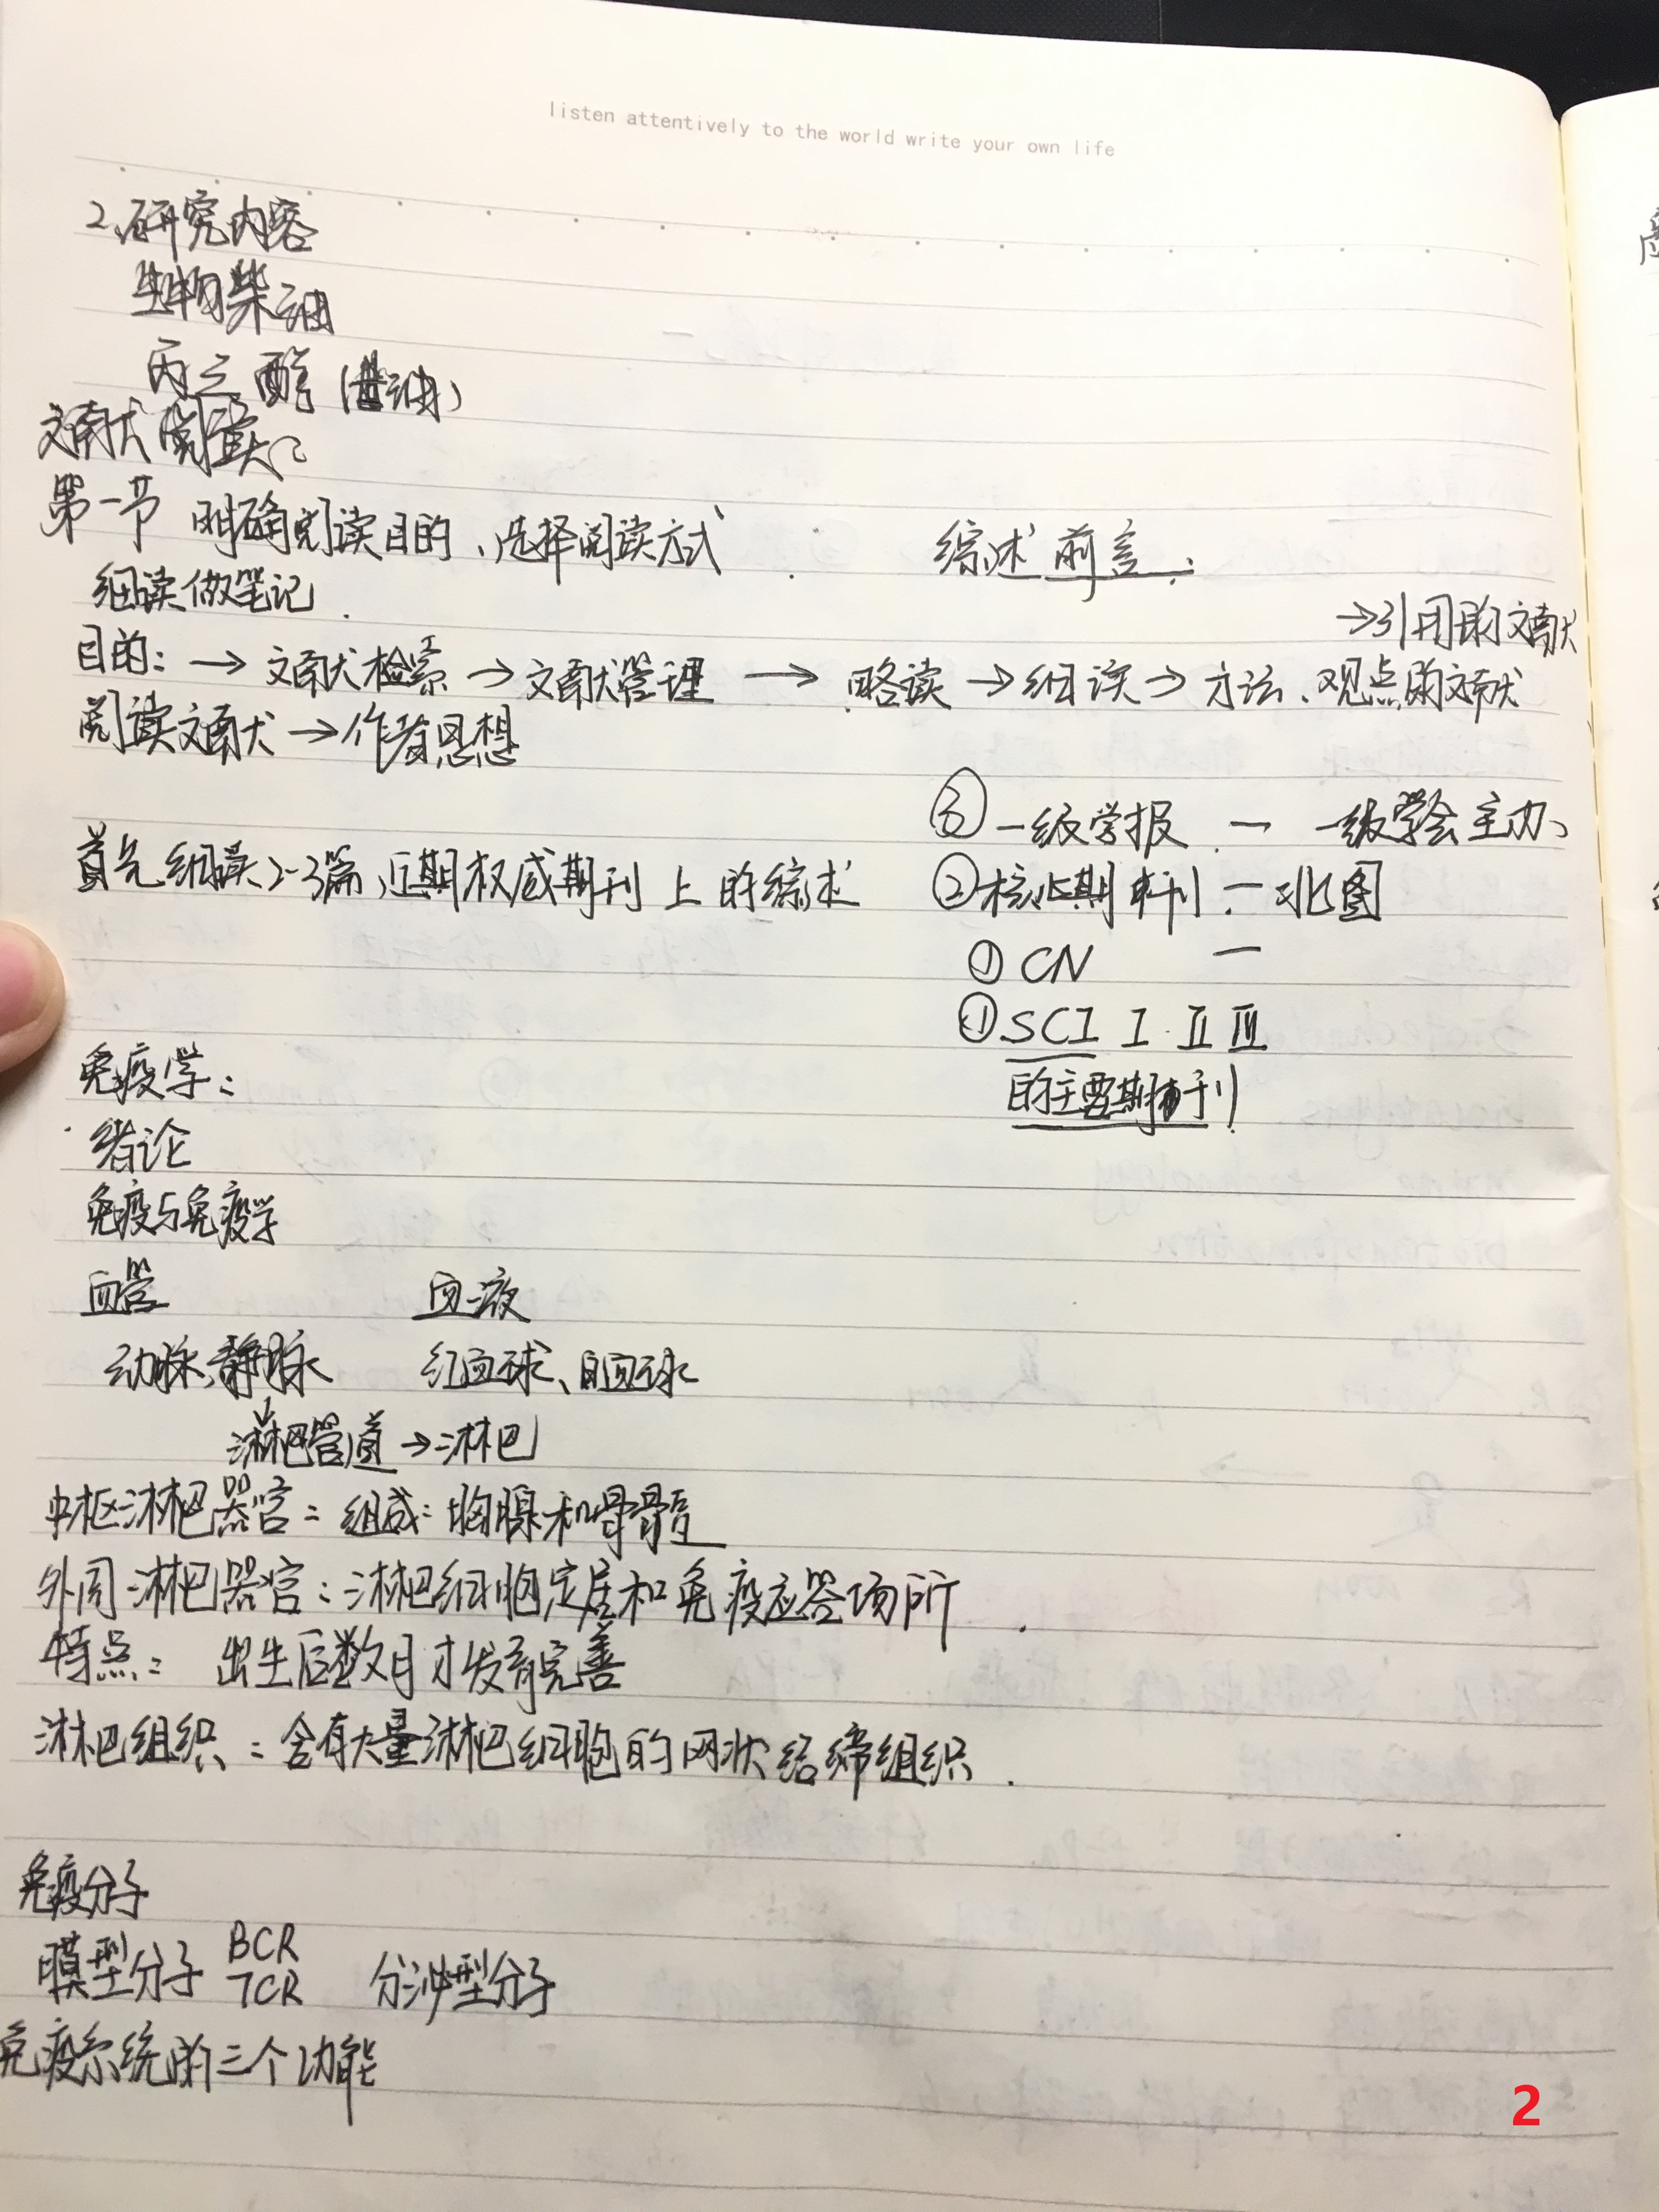 listen attentively to the world write your own life
2、研究内容
生物柴油
丙三醇(甘油)
文献阅读
第一节 明确阅读目的、选择阅读方式
综述前言:
细读做笔记.
→引用的文献
目的: → 文献检索 → 文献管理 → 略读 → 细读 → 方法、观点的文献
阅读文献 → 作者思想
③ 一级学报 — 一级学会主办、
首先细读2-3篇,近期权威期刊上的综述
② 核心期刊 — 北图
① CN —
① SCI I II III
的主要期刊
免疫学:
绪论
免疫与免疫学
血管 血液
动脉,静脉 红血球、白血球
淋巴管道 → 淋巴
中枢淋巴器官: 组成: 胸腺和骨髓
外周淋巴器官: 淋巴细胞定居和免疫应答场所.
特点: 出生后数月才发育完善
淋巴组织: 含有大量淋巴细胞的网状结缔组织.
免疫分子
膜型分子 BCR
TCR 分泌型分子
免疫系统的三个功能
2